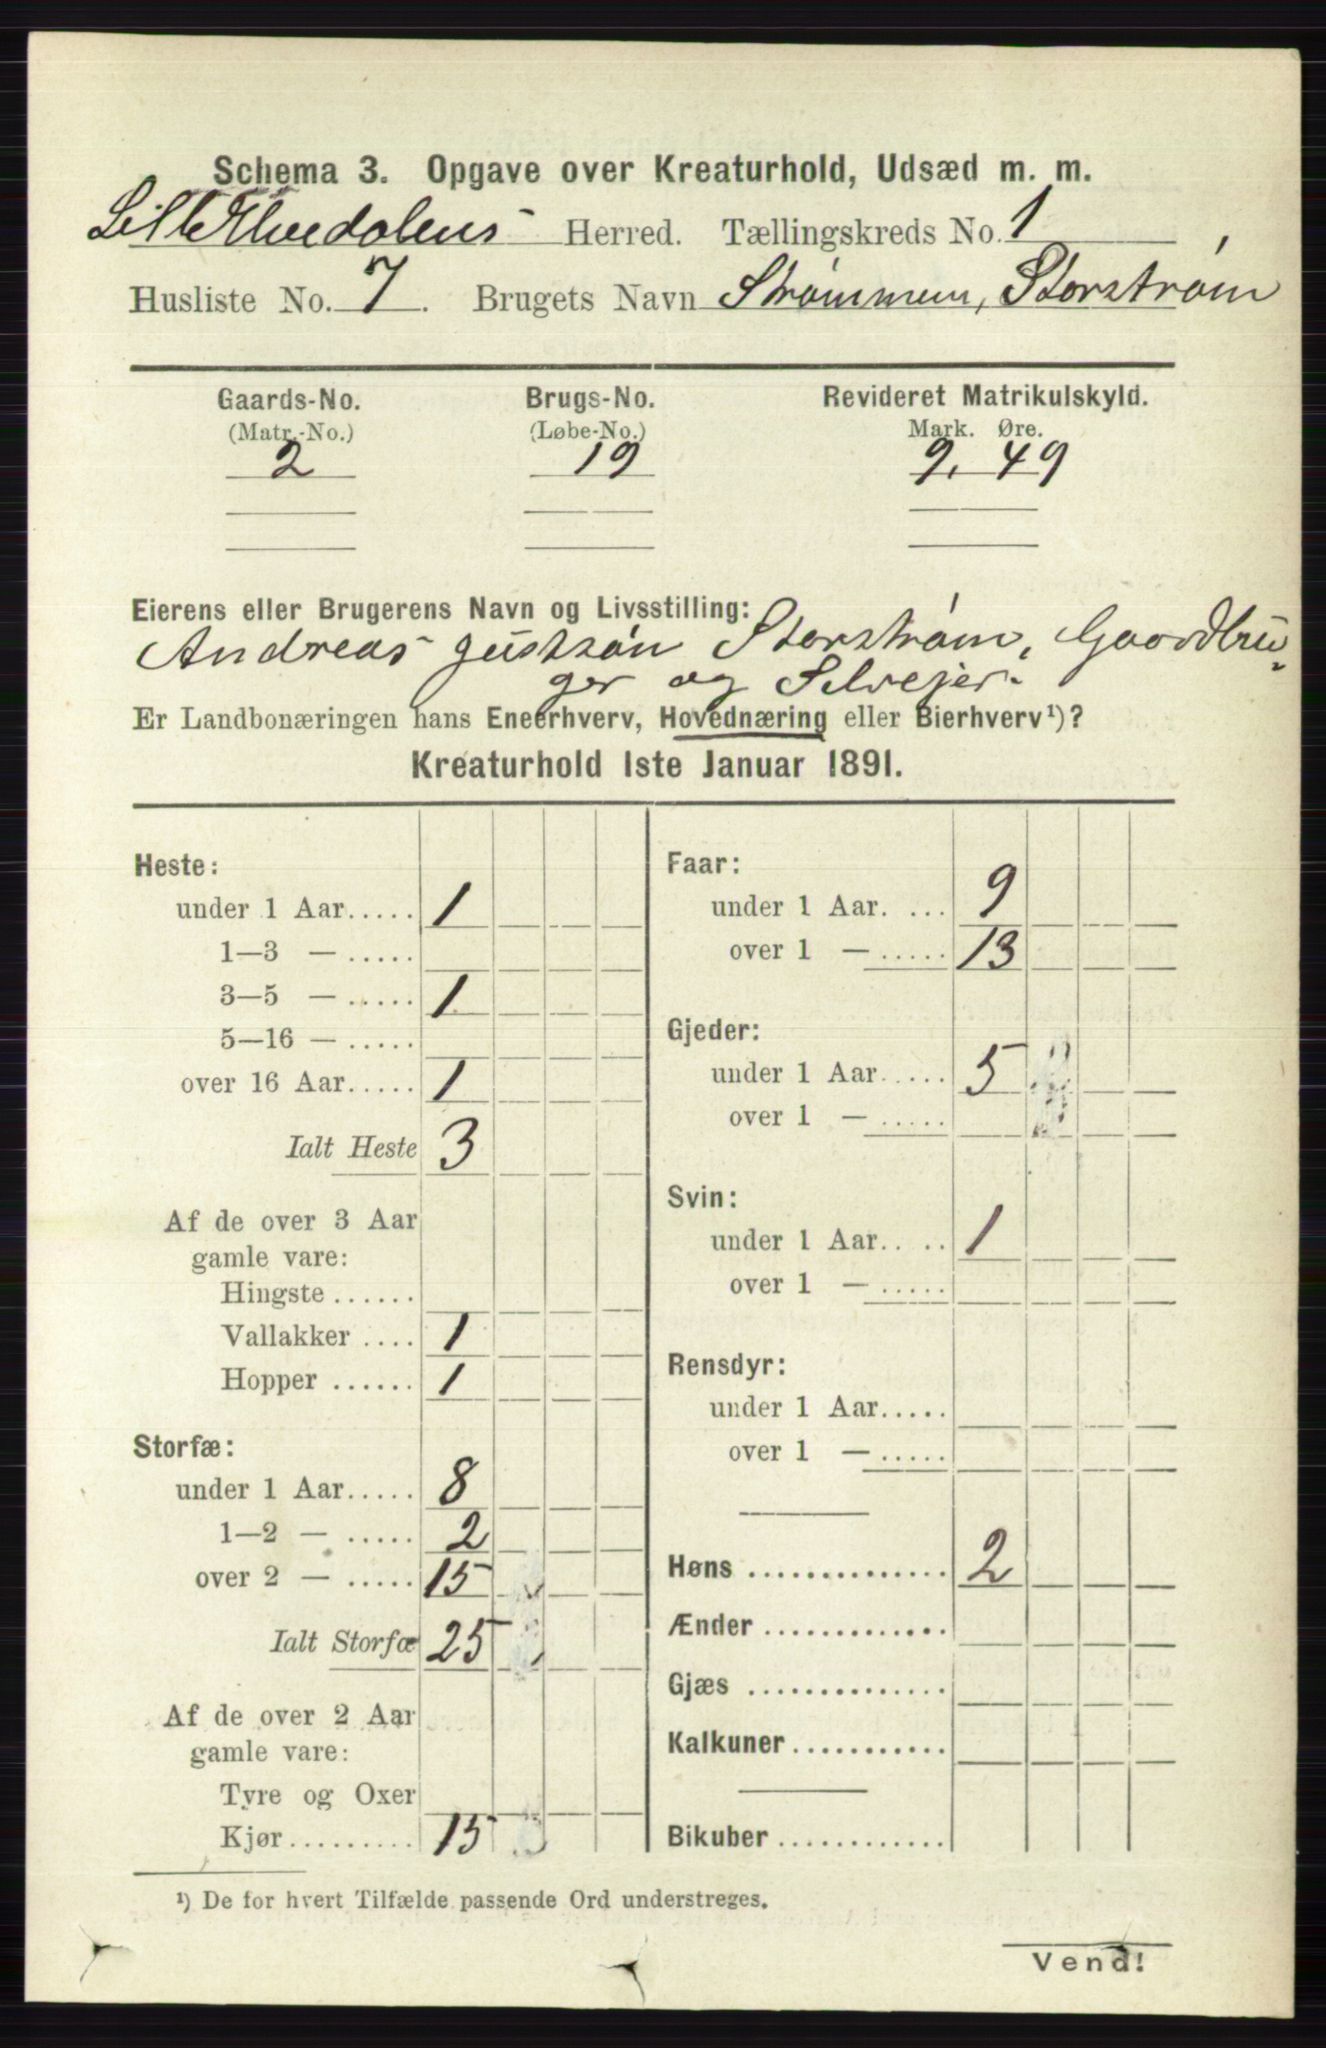 Schema 3. Opgave over Kreaturhold, Udsæd m. m.
Lille Elvedalens Herred. Tællingskreds No. 1
Husliste No. 7. Brugets Navn Strømmen, Storstrøm
Gaards-No. Brugs-No. Revideret Matrikulskyld.
(Matr.-No.) (Løbe-No.) Mark. Øre.
2 19 9. 49
Eierens eller Brugerens Navn og Livsstilling:
Andreas Justsøn Storstrøm, Gaardbru-
ger og Selvejer.
Er Landbonæringen hans Eneerhverv, Hovednæring eller Bierhverv¹)?
Kreaturhold 1ste Januar 1891.
Heste:
under 1 Aar..... 1
1—3 — .....
3—5 — ..... 1
5—16 — .....
over 16 Aar..... 1
Ialt Heste 3
Af de over 3 Aar
gamle vare:
Hingste ......
Vallakker .... 1
Hopper ...... 1
Storfæ:
under 1 Aar..... 8
1—2 — ..... 2
over 2 — ..... 15
Ialt Storfæ 25
Af de over 2 Aar
gamle vare:
Tyre og Oxer
Kjør......... 15
Faar:
under 1 Aar. ... 9
over 1 — ..... 13
Gjeder:
under 1 Aar..... 5
over 1 — .....
Svin:
under 1 Aar..... 1
over 1 — .....
Rensdyr:
under 1 Aar.....
over 1 — .....
Høns .............. 2
Ænder .............
Gjæs ..............
Kalkuner...........
Bikuber ............
¹) De for hvert Tilfælde passende Ord understreges.
Vend!